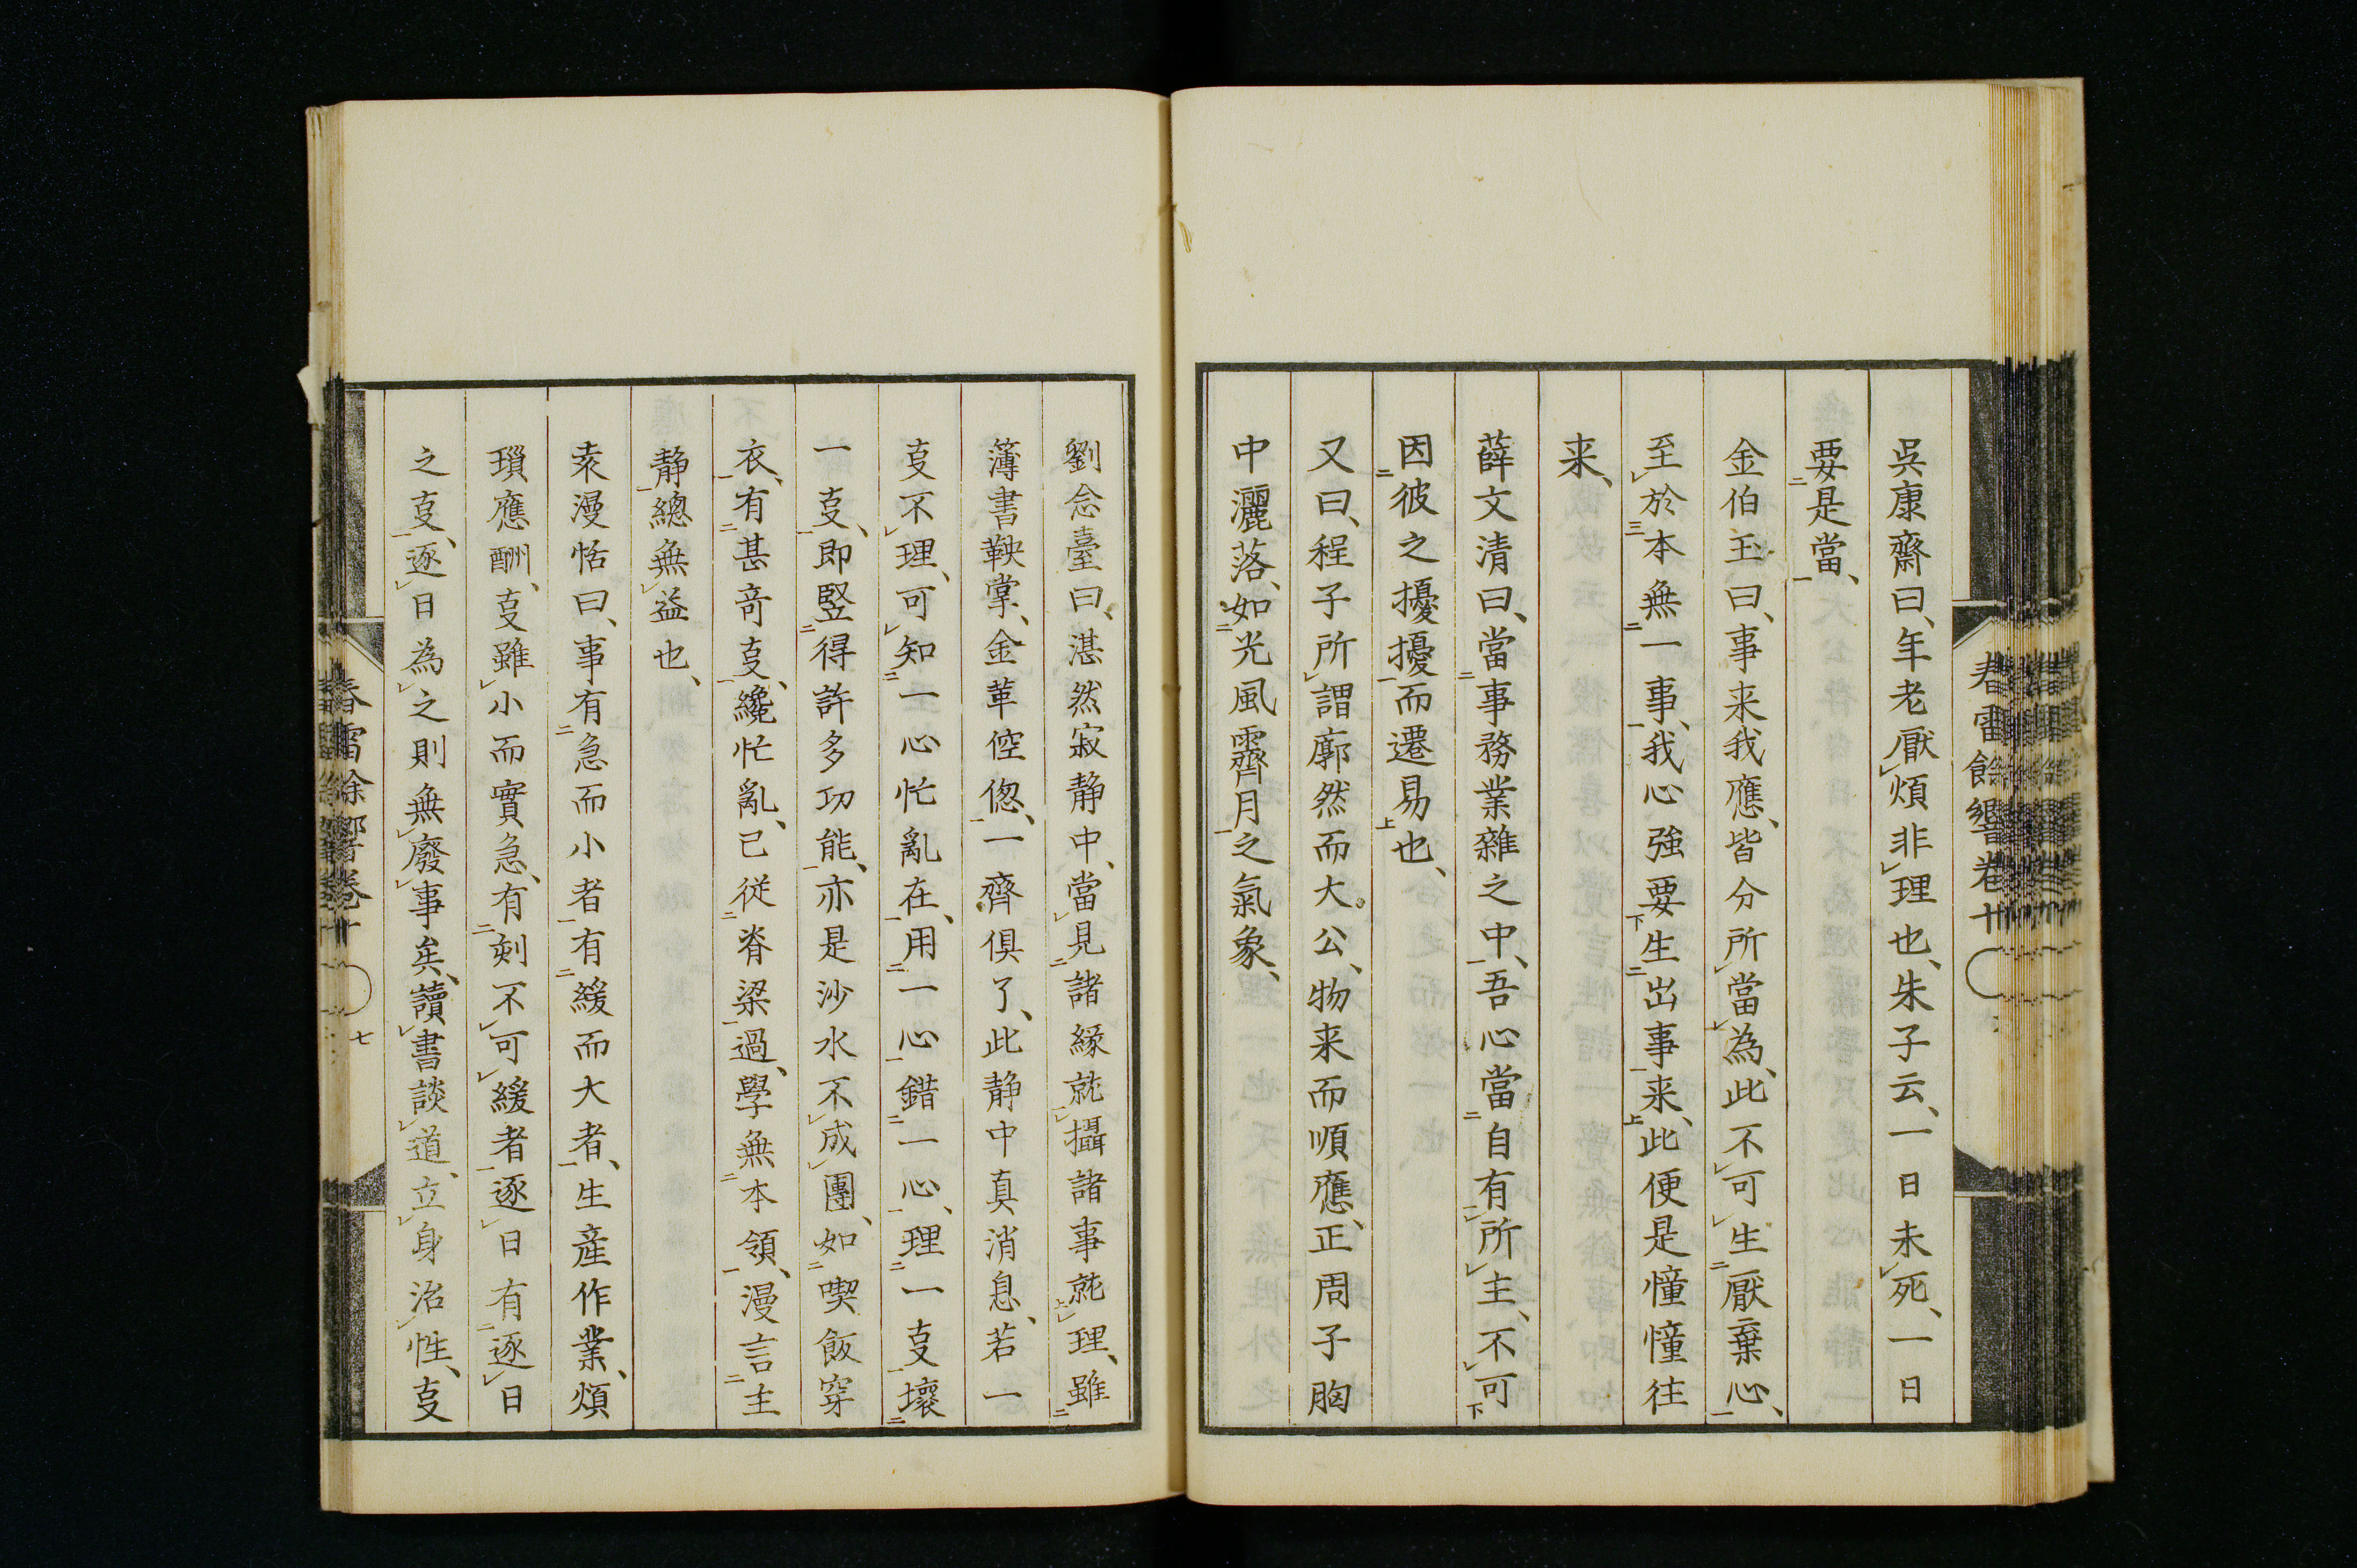 吳康齋曰、年老厭煩非理也、朱子云、一日未死、一日
要是當、
金伯玉曰、事来我應、皆分所當為、此不可生厭棄心、
至於本無一事、我心強要生出事来、此便是憧憧往
来、
薛文清曰、當事務業雜之中、吾心當自有所主、不可
因彼之擾擾而遷易也、
又曰、程子所謂廓然而大公、物来而順應、正周子胸
中灑落、如光風霽月之氣象、
春雷餘響卷十
劉念臺曰、湛然寂静中、當見諸緣就攝諸事就理、雖
簿書鞅掌、金革倥偬、一齊俱了、此静中真消息、若一
㕝不理、可知一心忙亂在、用一心錯一心、理一㕝壞
一㕝、即竪得許多功能、亦是沙水不成團、如喫飯穿
衣、有甚奇㕝、纔忙亂、已従脊梁過、學無本領、漫言主
静總無益也、
袁漫恬曰、事有急而小者有緩而大者、生産作業、煩
瑣應酬、㕝雖小而實急、有刻不可緩者逐日有逐日
之㕝、逐日為之則無廢事矣、讀書談道、立身治性、㕝
春雷餘響卷十
七